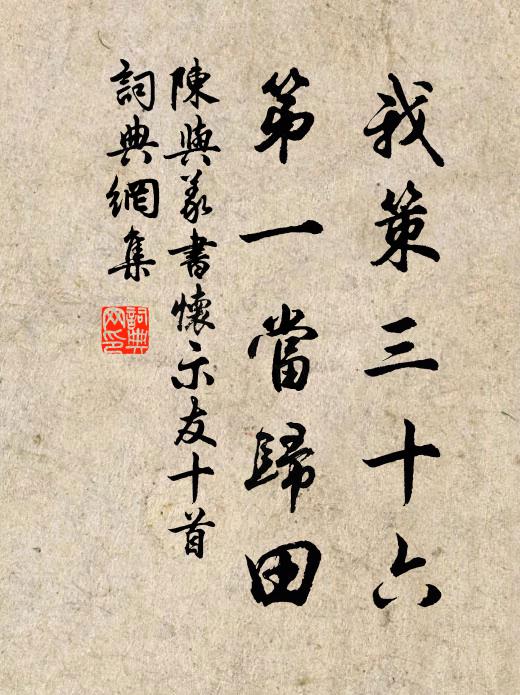 我策三十六
第一當歸田
陳與義書懷示友十首
詞典網集
詞典網印